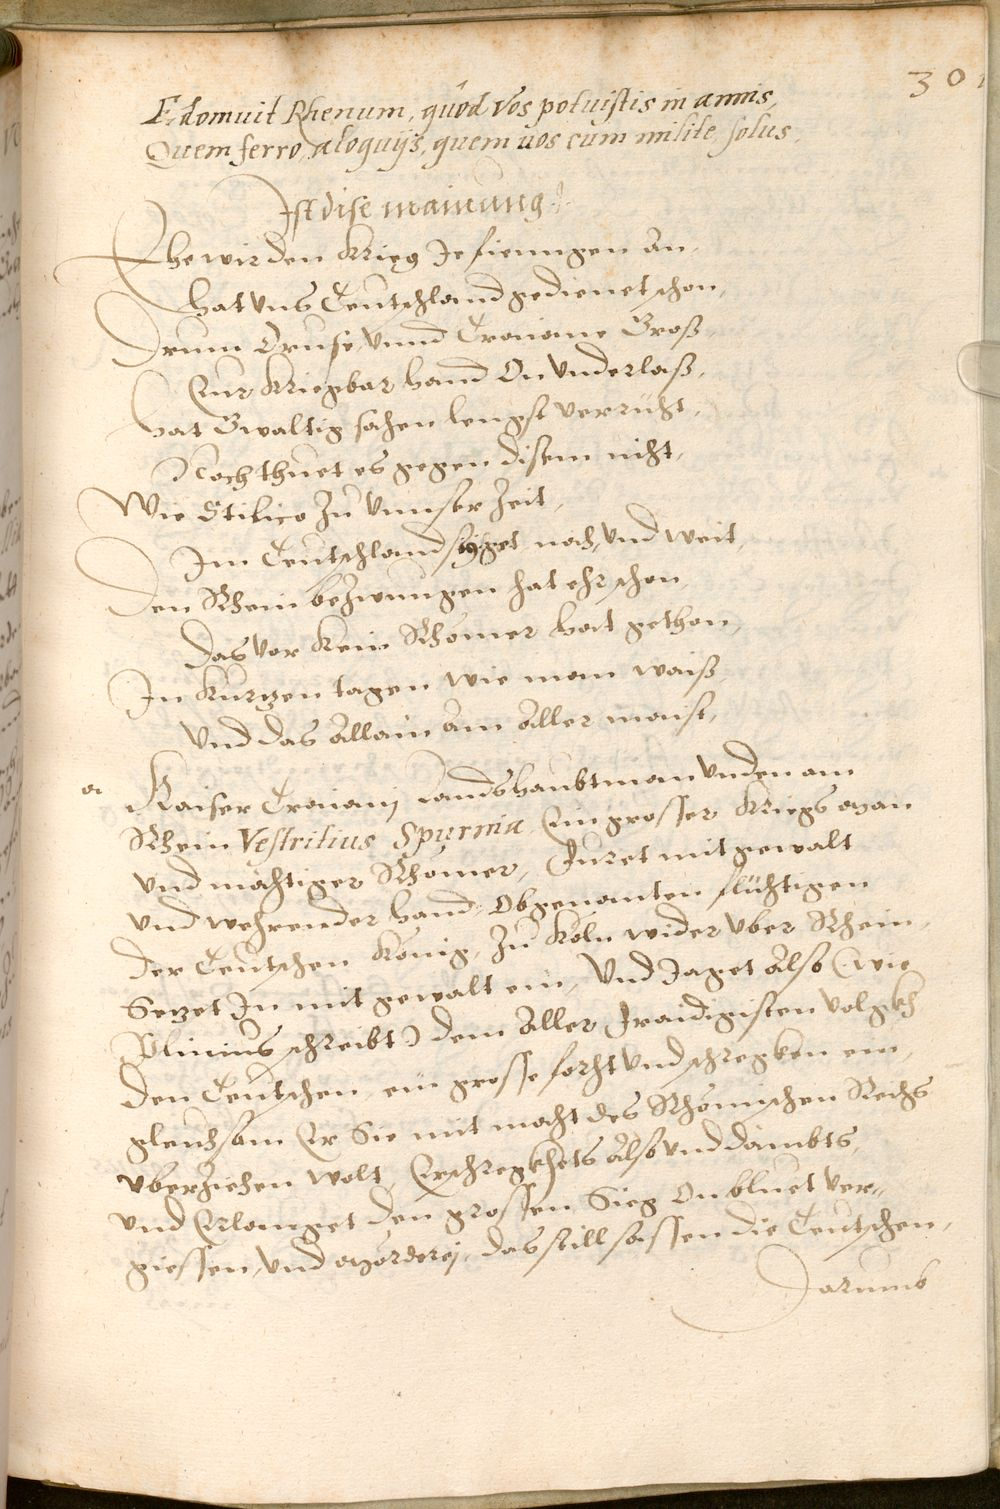 301
Edomuit Rhenum, quòd vos potuistis in annis,
Quem ferro, aloquijs, quem uos cum milite, solus.
Ist dise mainung.
Ehe wir den Krieg Je fienngen an,
Hat vns Teutschland gedienet schon,
Drum Druse, vnnd Traiane Groß
Eur Kriegbar hand On vnderlaß,
Hat Gwaltig sachen lengst verricht,
Noch thuet es gegen disem nicht,
Wie Stilico Zu vnnser Zeit,
Im Teutschland siget nach, vnd weit,
Den Rhein bezwungen hat ehr schon,
Das vor Kein Rhömer hat gethon,
In Kurtzen tagen wie man waiß
Vnd das Allain am Aller maist,
a Kaiser Traiani Landshaubtman vnden am
Rhein Vestritius Spurnia Ein grosser Kriegs man
vnd mächtiger Rhömer, Füret mit gewalt
vnd wehrender hand, Obgenanten flüchtigen
der Teutschen König, Zu Köln wider vber Rhein,
Setzet In mit gewalt ein, Vnd Jaget Also (wie
Plinius schreibt) dem Aller fraidigisten volgkh
den Teutschen ein grosse forcht vnd schregken ein,
gleuchsam Er Sie mit macht des Rhömischen Reichs
vberziehen wolt, Erschregkhets Also vnd dämbts,
vnd Erlanget den grossen Sieg On bluet ver-
giessen, vnd mörderej, das still sassen die Teutschen,
Darumb